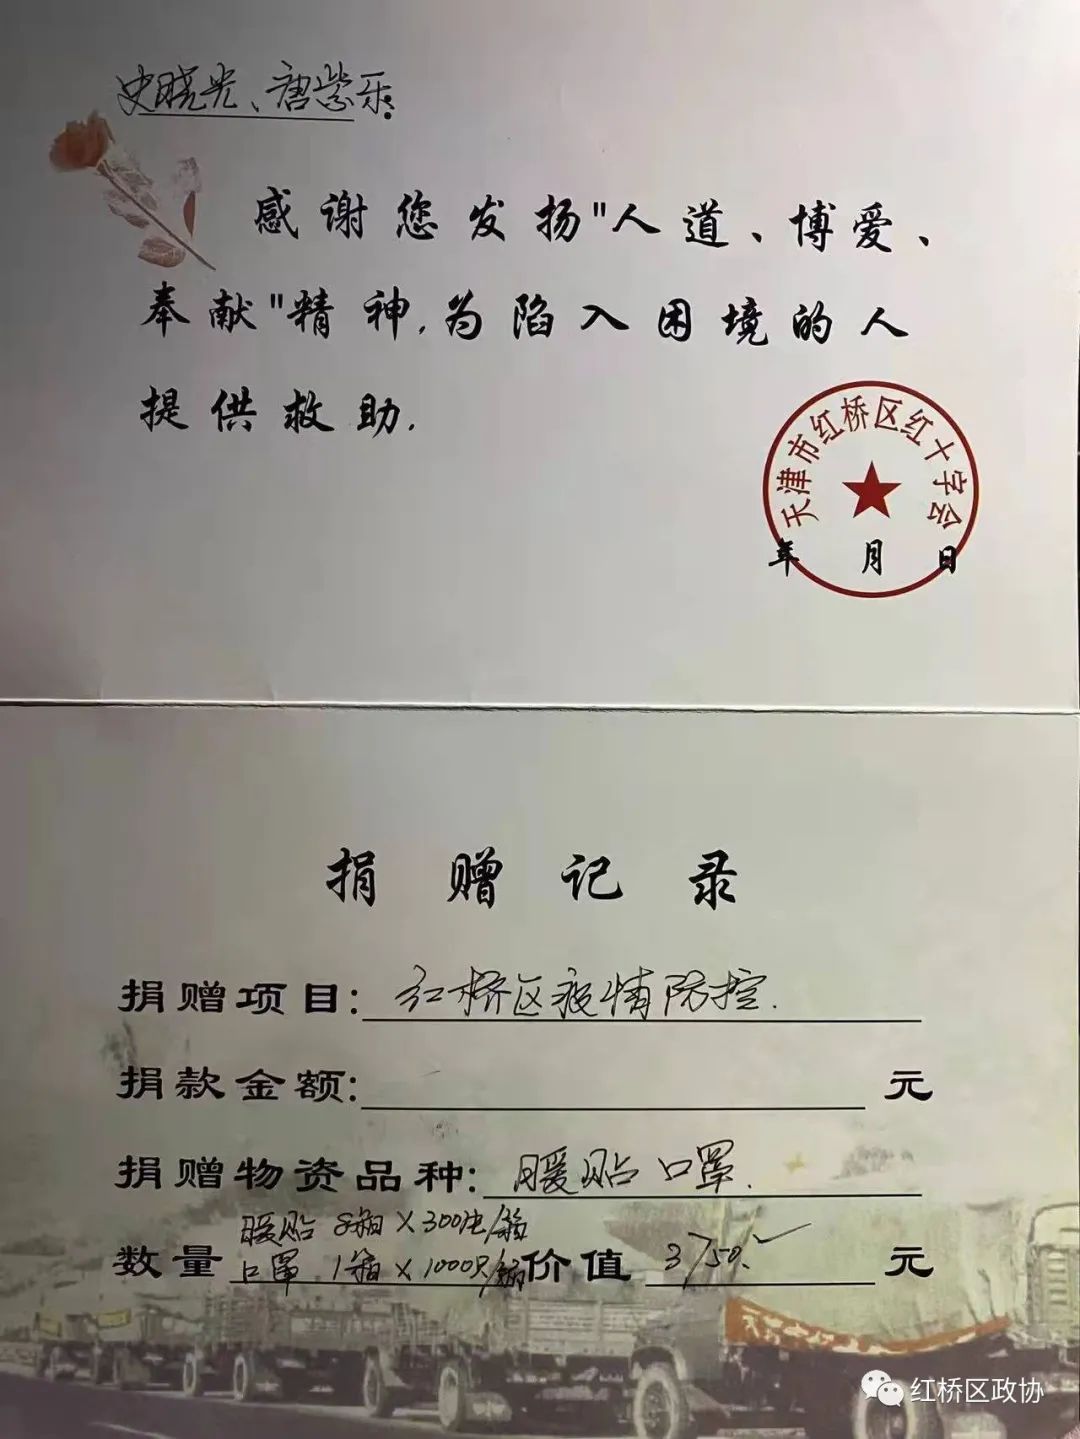 史晓光、唐紫乐:
感谢您发扬"人道、博爱、
奉献"精神,为陷入困境的人
提供救助.
天津市红桥区红十字会
年 月 日
捐赠记录
捐赠项目: 红桥区疫情防控.
捐款金额: 元
捐赠物资品种: 暖贴 口罩.
暖贴 8箱×300片/箱
数量 口罩 1箱×1000只/箱 价值 3750. 元
红桥区政协